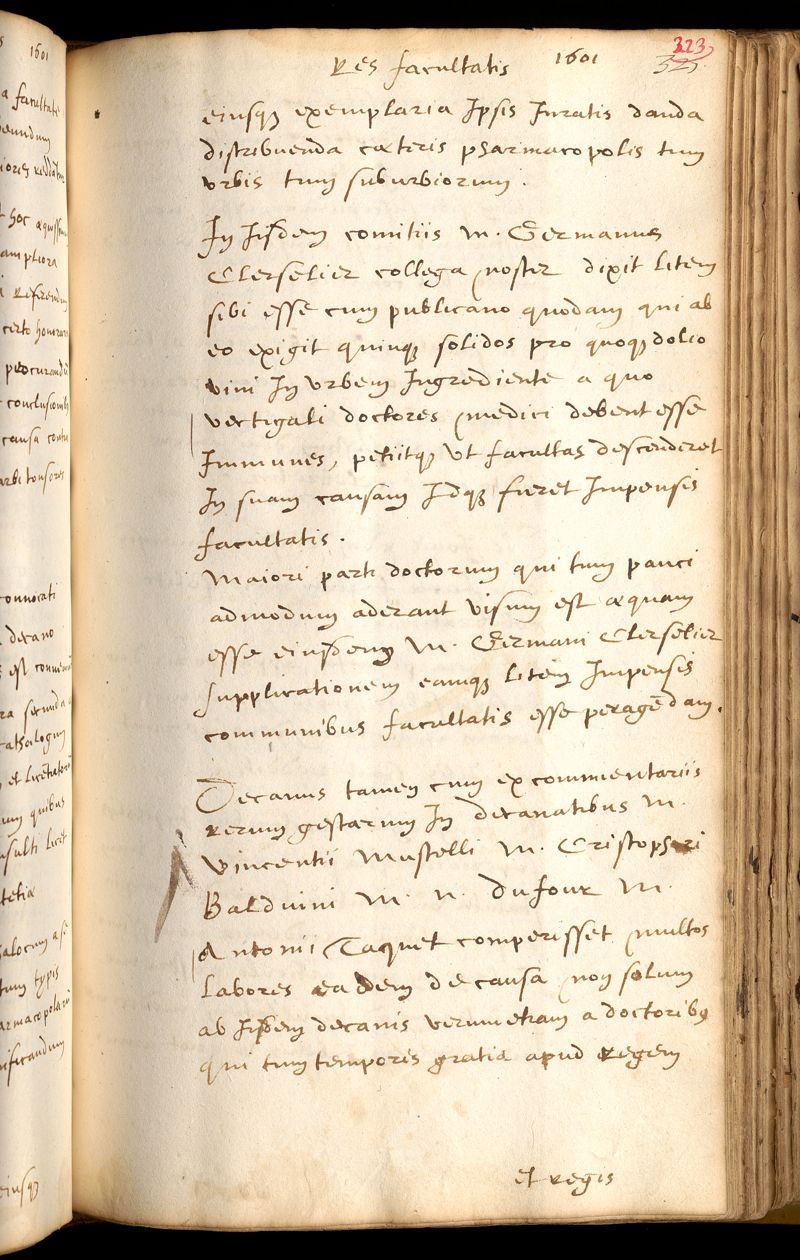 Res facultatis 1601
323
eiusq3 exemplaria Ipsis Iuratis danda
distribuenda cæteris pharmacopolis tum
vrbis tum suburbiorum.
In Iisdem comitiis M. Germanus
Clerselier collega noster dixit litem
sibi esse cum publicano quodam qui ab
eo exigit quinq3 solidos pro quoq3 dolio
vini In vrbem Ingrediente a quo
vectigali doctores medici debent esse
Immunes, petiitq3 vt facultas descenderet
In suam causam Idq3 fieret Impensis
facultatis.
Maiori parti doctorum qui tum pauci
admodum aderant visum est æquam
esse eiusdem M. Germani Clerselier
supplicationem eamq3 litem Impensis
communibus facultatis esse peragēdam.
Decanus tamen cum ex commentariis
rerum gestarum In decanatibus M.
Vincentii Mustelli M. Cristophori
Balduini M. n. dufour M.
Antonii Taquet comperisset multos
labores eadem de causa non solum
ab Iisdem decanis verumetiam a doctoribus
qui tum temporis gratia apud regem
et regis
1601
a facultate
conuocati
decano
ra secunda
catalogum
um quibus
tum typis
eiusq3